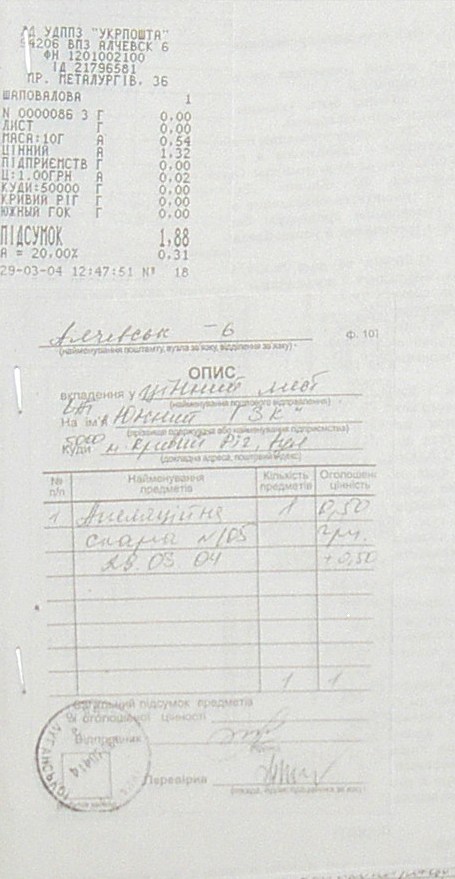 УДППЗ "УКРПОШТА"
94206 ВПЗ АЛЧЕВСК 6
ФН 1201002100
ІД 21796581
ПР. МЕТАЛУРГІВ, 36
ШАПОВАЛОВА 1
N 0000086 3 Г 0,00
ЛИСТ Г 0,00
МАСА:10Г А 0,54
ЦІННИЙ А 1,32
ПІДПРИЄМСТВ Г 0,00
Ц:1.00ГРН А 0,02
КУДИ:50000 Г 0,00
КРИВИЙ РІГ Г 0,00
ЮЖНЫЙ ГОК Г 0,00
ПІДСУМОК 1,88
А = 20,00% 0,31
29-03-04 12:47:51 № 18
Алчевськ - 6 ф. 107
(найменування поштамту, вузла зв'язку, відділення зв'язку)
ОПИС
вкладення у цінний лист
(найменування поштового відправлення)
На ім'я "Южний ГЗК"
(прізвище одержувача або найменування підприємства)
Куди м. Кривий Ріг,
(докладна адреса, поштовий індекс)
№ п/п Найменування предметів Кількість предметів Оголошена цінність
1 Апеляційна 1 0,50
скарга №105 грн.
29.03.04 +0,50
1 1
Загальний підсумок предметів
й оголошеної цінності
Відправник
Перевірив